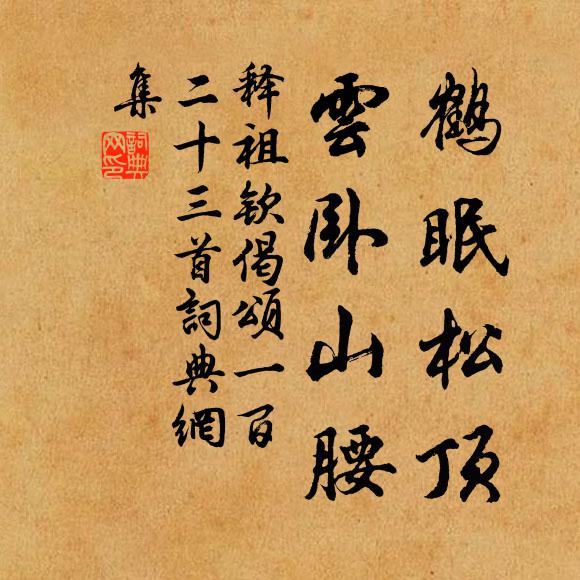 鹤眠松顶
雲卧山腰
释祖钦偈颂一百
二十三首詞典網
集
詞典
网印